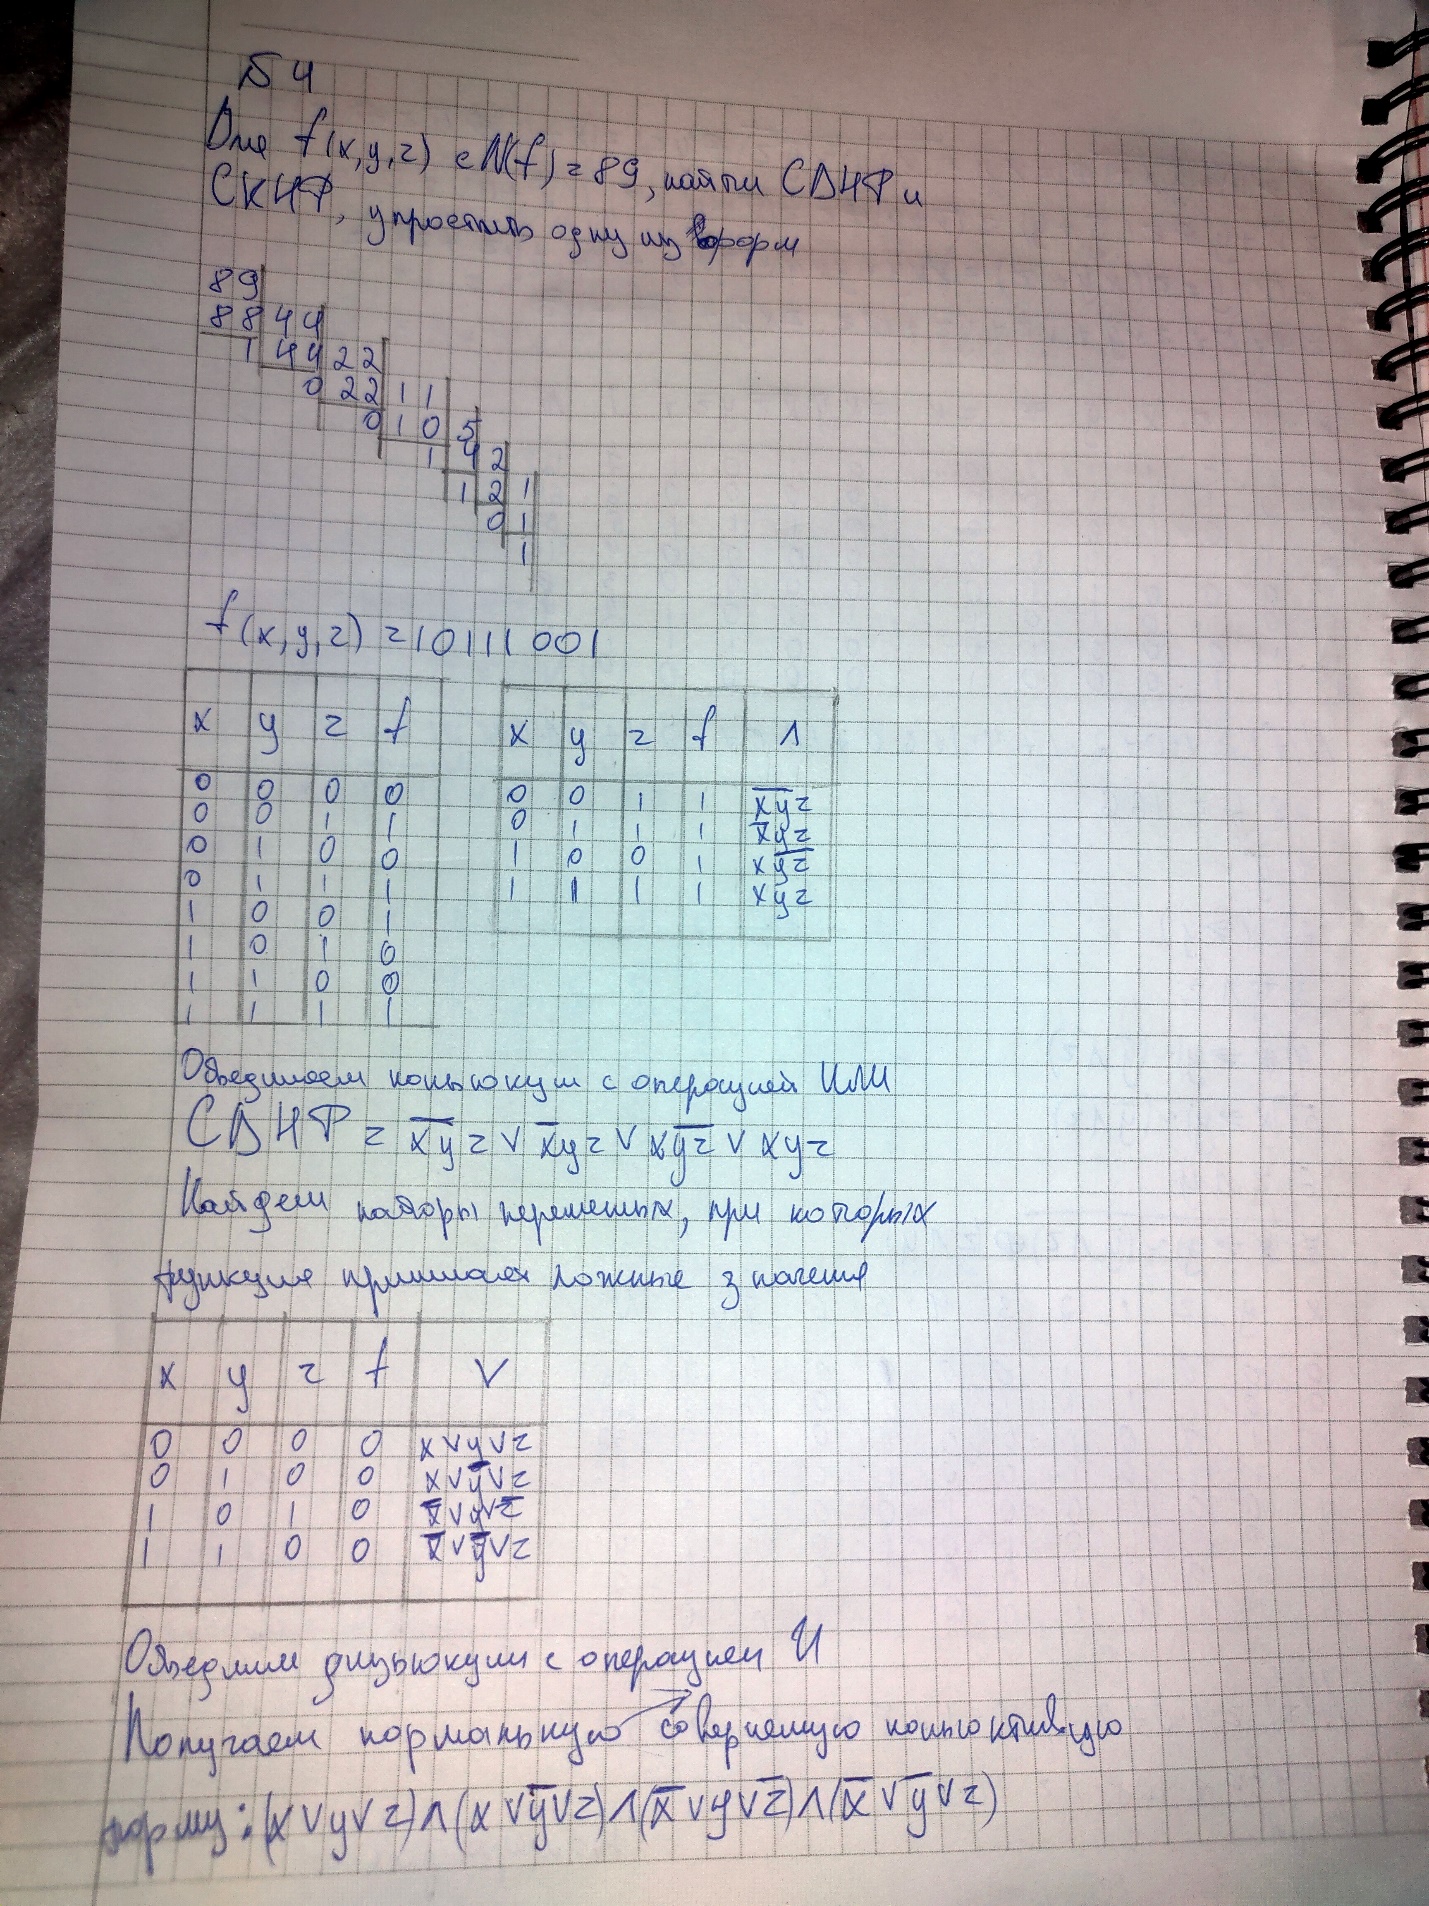 №4
Для f(x,y,z) с N(f)=89, найти СДНФ и
СКНФ, упростить одну из форм
89
88 44
1 44 22
0 22 11
0 10 5
1 4 2
1 2 1
0 1
1
f(x,y,z) = 10111001
x y z f
0 0 0 0
0 0 1 1
0 1 0 0
0 1 1 1
1 0 0 1
1 0 1 0
1 1 0 0
1 1 1 1
x y z f ∧
0 0 1 1 x̅y̅z
0 1 1 1 x̅yz
1 0 0 1 xy̅z̅
1 1 1 1 xyz
Объединяем коньюкции с операцией ИЛИ
СДНФ = x̅y̅z ∨ x̅yz ∨ xy̅z̅ ∨ xyz
Найдем наборы переменных, при которых
функция принимает ложные значения
x y z f ∨
0 0 0 0 x∨y∨z
0 1 0 0 x∨y̅∨z
1 0 1 0 x̅∨y∨z̅
1 1 0 0 x̅∨y̅∨z
Объединим дизьюкции с операцией И
Получаем нормальную совершенную коньюктивную
форму: (x∨y∨z)∧(x∨y̅∨z)∧(x̅∨y∨z̅)∧(x̅∨y̅∨z)